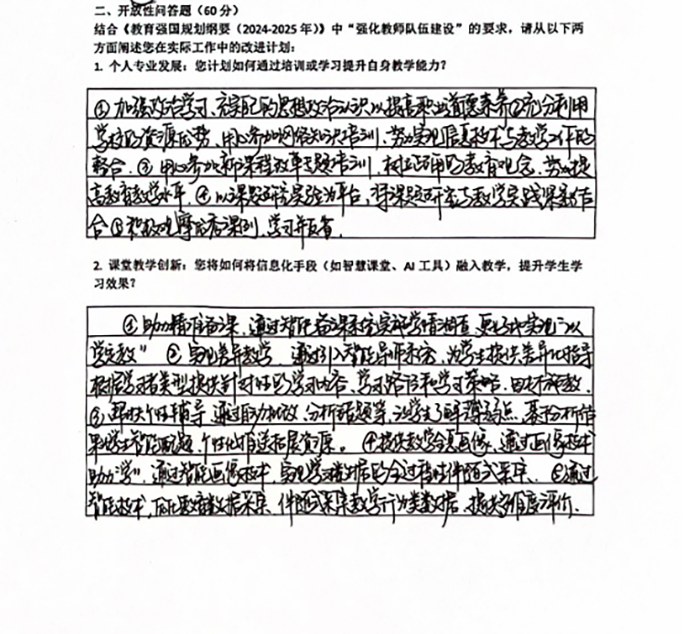 二、开放性问答题（60分）
结合《教育强国规划纲要（2024-2025年）》中“强化教师队伍建设”的要求，请从以下两
方面阐述您在实际工作中的改进计划：
1. 个人专业发展：您计划如何通过培训或学习提升自身教学能力？
①加强政治学习，充实自己的思想政治认识以提高职业道德素养②充分利用
学校的资源优势，用心参加网络知识培训，努力实现信息技术与教学工作的
整合。③用心参加新课程改革专题培训，树立正确的教育观念，努力提
高教育教学水平。④以课题研究实验为平台，将课题研究与教学实践紧密结
合⑤积极观摩优秀课例，学习并反省。
2. 课堂教学创新：您将如何将信息化手段（如智慧课堂、AI 工具）融入教学，提升学生学
习效果？
①助力精准备课，通过智能备课系统实现学情调查，更好地实现“以
学定教” ②实现差异教学，通过引入智能导师系统，为学生提供差异化指导
根据学习者类型提供针对性的学习内容、学习路径和学习策略，因材施教。
③ 个性辅导，通过自动批改、分析错题等，让学生了解薄弱点，基于分析结
果 智能配题，个性化推送拓展资源。④提供教学全息画像，通过画像技术
助力“学”，通过智能画像技术，实现学习数据的全过程伴随式采集。⑤通过
智能技术，优化教育数据采集，伴随式采集教学行为类数据，提供多维度评价。